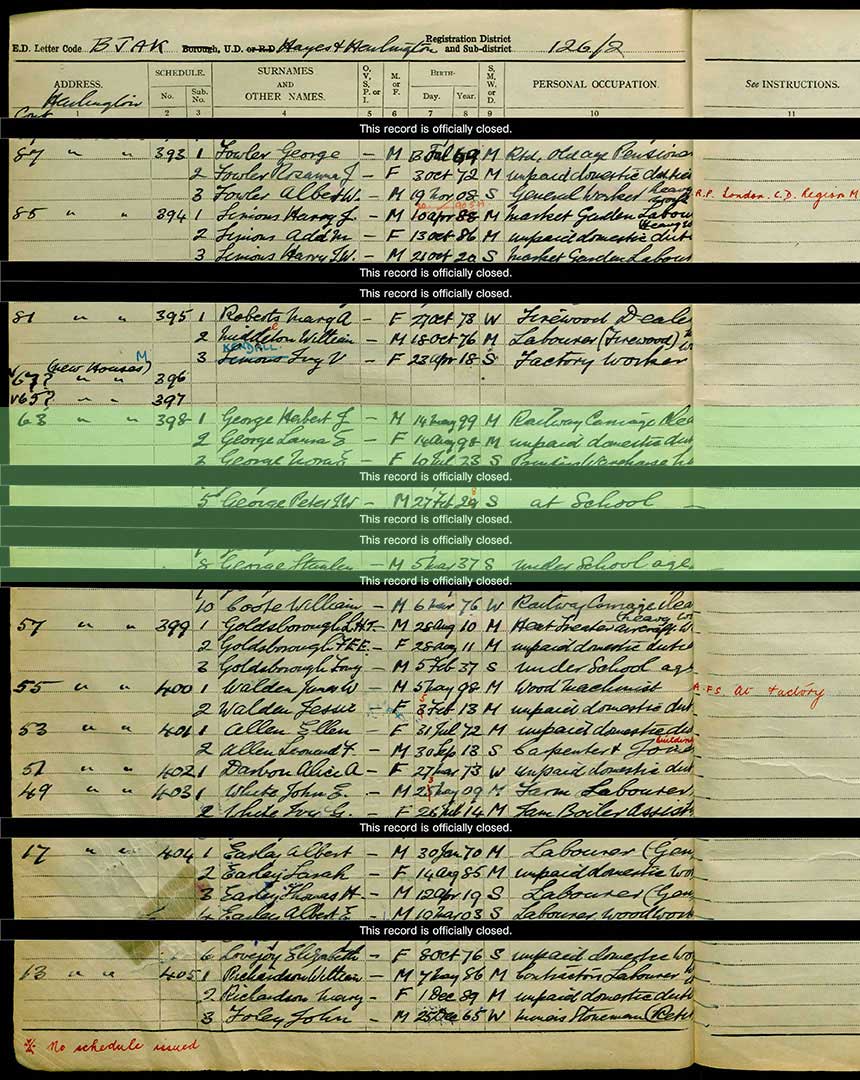 E.D. Letter Code BJAK Borough, U.D. or R.D. Hayes & Harlington Registration District and Sub-district 126/2
ADDRESS. SCHEDULE. SURNAMES AND OTHER NAMES. O, V, S, P. or I. M. or F. BIRTH- S, M, W, or D. PERSONAL OCCUPATION. See INSTRUCTIONS.
No. Sub. No. Day. Year.
1 2 3 4 5 6 7 8 9 10 11
Harlington
Cont
This record is officially closed.
87 " " 393 1 Fowler George – M 13 Jul 69 M Rtd. Old age Pensioner
2 Fowler Rosanna J – F 3 Oct 72 M unpaid domestic duties
3 Fowler Albert W. – M 19 Nov 08 S General Worker Heavy R.P. London. C.D. Region M
85 " " 394 1 Simons Harry J. – M 10 Apr 88 M Market Garden Labour
Heavy W
2 Simons Ada M – F 13 Oct 86 M unpaid domestic duti
3 Simons Harry J W. – M 21 Oct 20 S Market Garden Labour
This record is officially closed.
This record is officially closed.
81 " " 395 1 Roberts Mary A – F 27 Oct 73 W Firewood Deale
2 Middleton William – M 18 Oct 76 M Labourer (Firewood)
KENDALL M
3 Simons Ivy V – F 23 Apr 18 S Factory Worker
(New Houses)
67? " " 396
65? " " 397
63 " " 398 1 George Herbert J – M 14 May 99 M Railway Carriage Clea
2 George Laura E – F 14 Aug 98 M unpaid domestic dut
3 George Nora E – F 10 Jul 23 S Printers Warehouse
This record is officially closed.
5 George Peter J W – M 27 Feb 29 S at School
This record is officially closed.
This record is officially closed.
8 George Stanley – M 5 Mar 37 S under School age
This record is officially closed.
10 Coote William – M 6 Mar 76 W Railway Carriage Clea
(heavy W
57 " " 399 1 Goldsborough L.H.T. – M 28 Aug 10 M Heat Treater Aircraft W
2 Goldsborough F.E.E. – F 28 Aug 11 M unpaid domestic duti
3 Goldsborough Tony – M 5 Feb 37 S under School age
55 " " 400 1 Walden James W – M 5 May 98 M Wood Machinist A.F.S. At Factory
2 Walden Jessie – F 3 Feb 13 M unpaid domestic dut
53 " " 401 1 Allen Ellen – F 31 Jul 72 M unpaid domestic dut
building
2 Allen Leonard F. – M 30 Sep 13 S Carpenter & Joine
51 " " 402 1 Darbon Alice A – F 27 Mar 73 W unpaid domestic dut
49 " " 403 1 White John E. – M 25 May 09 M Farm Labourer
2 White Ivy G. – F 26 Jul 14 M Jam Boiler Assist
This record is officially closed.
17 " " 404 1 Earley Albert – M 30 Jan 70 M Labourer (Gen
2 Earley Sarah – F 14 Aug 85 M unpaid domestic wo
3 Earley Thomas H – M 12 Apr 19 S Labourer (Gen
4 Earley Albert E – M 10 Mar 03 S Labourer woodwork
This record is officially closed.
6 Lovejoy Elizabeth – F 8 Oct 76 S unpaid domestic wo
13 " " 405 1 Richardson William – M 7 May 86 M Contractors Labourer
2 Richardson Mary – F 1 Dec 89 M unpaid domestic duti
3 Foley John – M 25 Dec 65 W Stoneman (Reti
No schedule issued